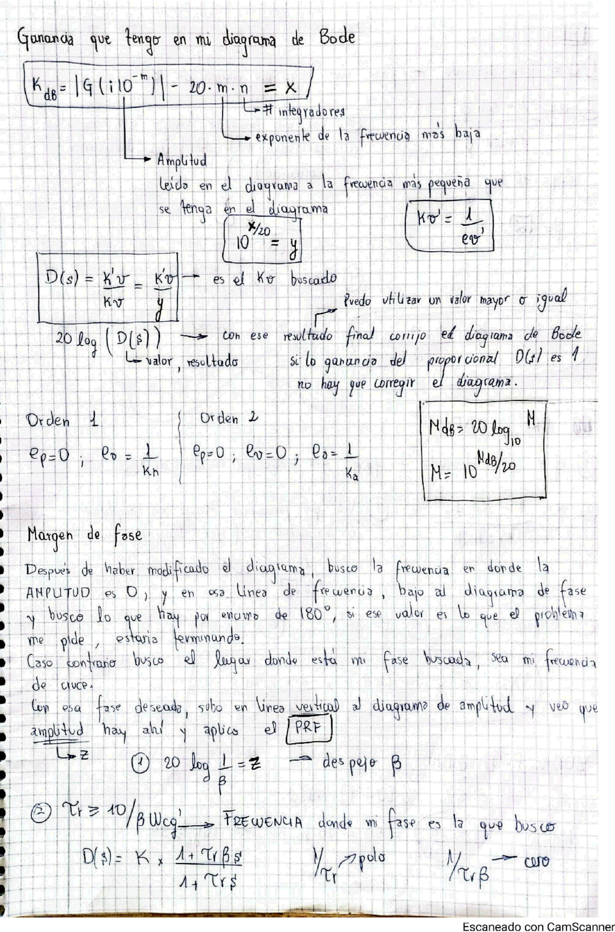 Ganancia que tengo en mi diagrama de Bode
K dB = |G(i10^-m)| - 20·m·n = x
# integradores
exponente de la frecuencia más baja
Amplitud
leída en el diagrama a la frecuencia más pequeña que
se tenga en el diagrama
10^x/20 = y
Kv' = 1/ev'
D(s) = K'v/Kv = K'v/y
es el Kv buscado
Puedo utilizar un valor mayor o igual
20 log (D(s)) → con ese resultado final corrijo el diagrama de Bode
valor, resultado
si la ganancia del proporcional D(s) es 1
no hay que corregir el diagrama.
Orden 1
ep=0 ; ev = 1/Kn
Orden 2
ep=0 ; ev=0 ; ea = 1/Ka
MdB = 20 log10 M
M = 10^MdB/20
Margen de fase
Después de haber modificado el diagrama, busco la frecuencia en donde la
AMPLITUD es 0, y en esa línea de frecuencia, bajo al diagrama de fase
y busco lo que hay por encima de 180°, si ese valor es lo que el problema
me pide, estaría terminando.
Caso contrario busco el lugar donde está mi fase buscada, sea mi frecuencia
de cruce.
Con esa fase deseada, subo en línea vertical al diagrama de amplitud y veo que
amplitud hay ahí y aplico el PRF
z
① 20 log 1/β = z → despejo β
② τr ≥ 10/β Wcg' → FRECUENCIA donde mi fase es la que busco
D(s) = K x (1 + τr β s)/(1 + τr s)
1/τr → polo
1/τrβ → cero
Escaneado con CamScanner